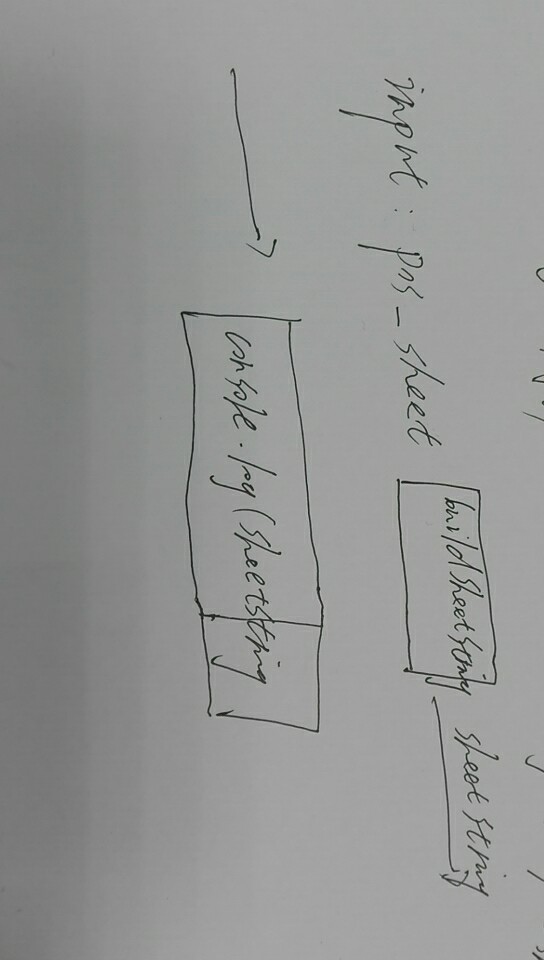 input : pos_sheet
buildsheetstring
sheetstring
console.log(sheetstring